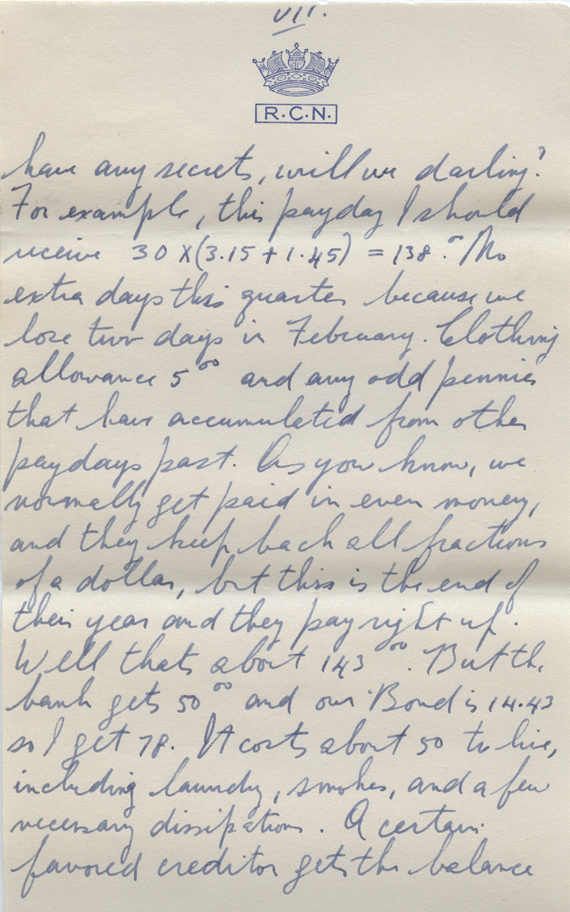 VII.
R.C.N.
have any secrets, will we darling?
For example, this payday I should
receive 30 X (3.15 + 1.45) = 138.00 No
extra days this quarter because we
lose two days in February. Clothing
allowance 5 00 and any odd pennies
that have accumulated from other
paydays past. As you know, we
normally get paid in even money,
and they keep back all fractions
of a dollar, but this is the end of
their year and they pay right up.
Well thats about 143 00. But the
bank gets 50 00 and our Bond is 14.43
so I get 78. It costs about 50 to live,
including laundry, smokes, and a few
necessary dissipations. A certain
favored creditor gets the balance